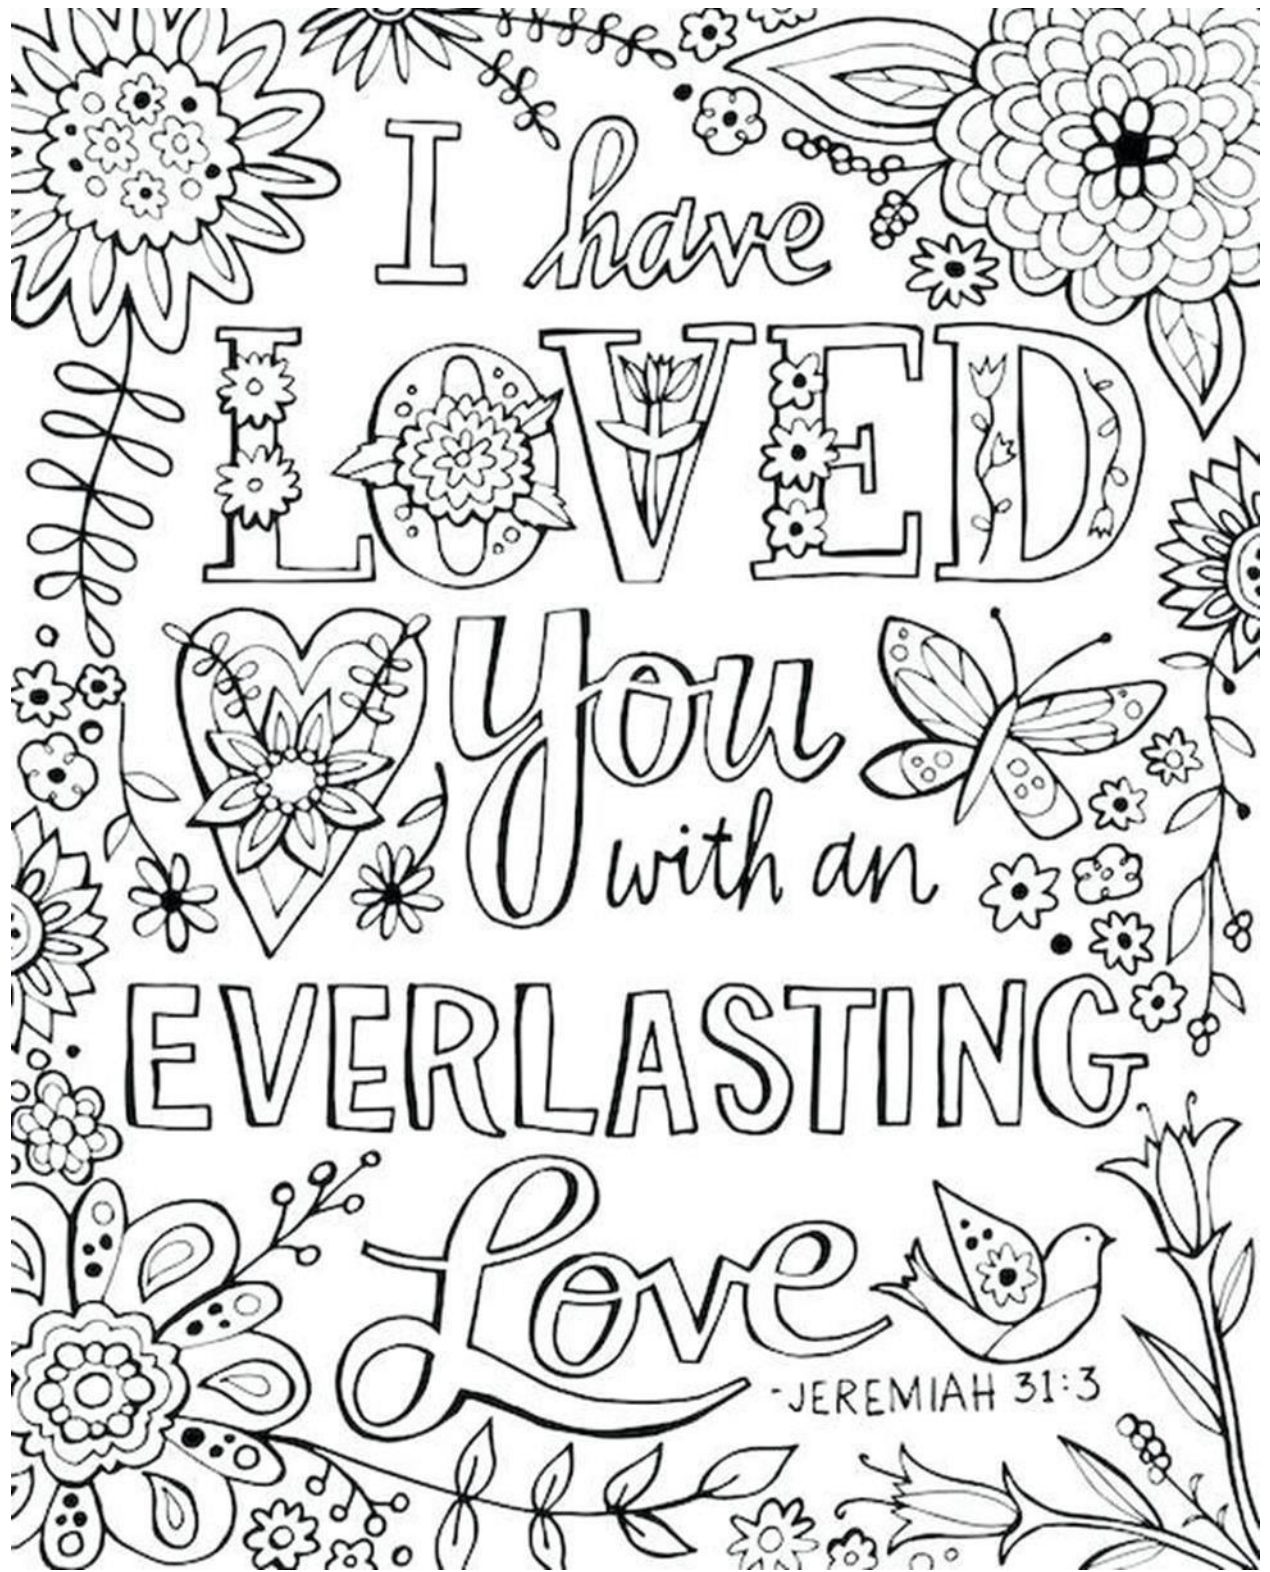 I have
LOVED
you
with an
EVERLASTING
Love
-JEREMIAH 31:3